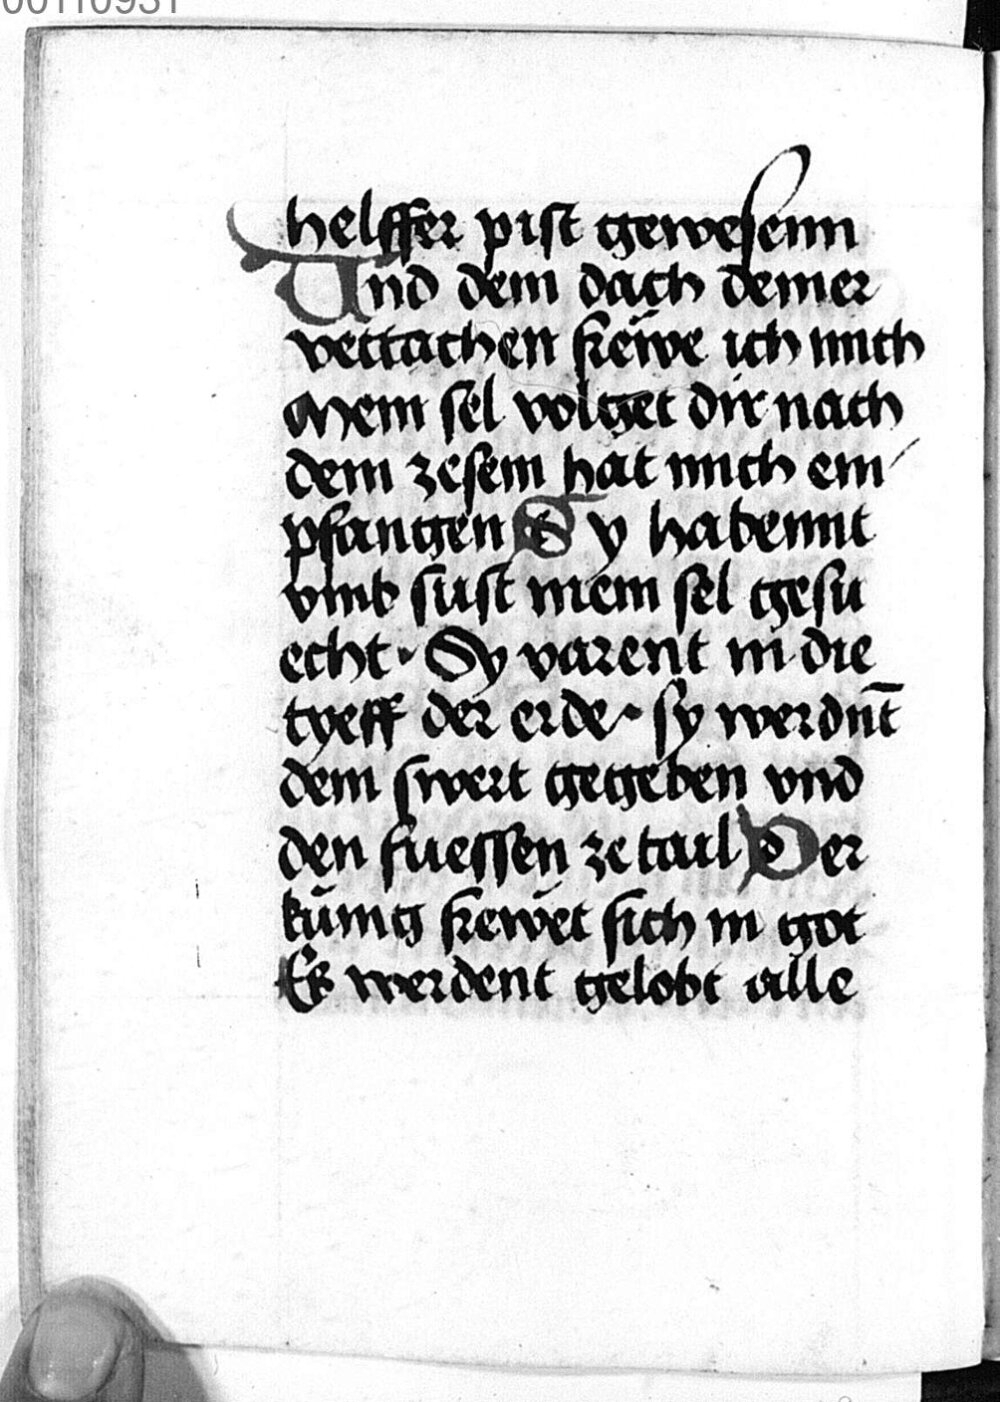 00110931
helffer pist gewesenn
Und dem dach deiner
vettachen frewe ich mich
Mein sel volget dir nach
dein zesem hat mich em
pfangen Sy habennt
vmb sust mein sel gesu
echt · Sy varent in die
tyeff der erde · sy werdnt̄
dem swert gegeben vnd
den fuessen ze tail Der
kunig frewet sich in got
Es werdent gelobt alle